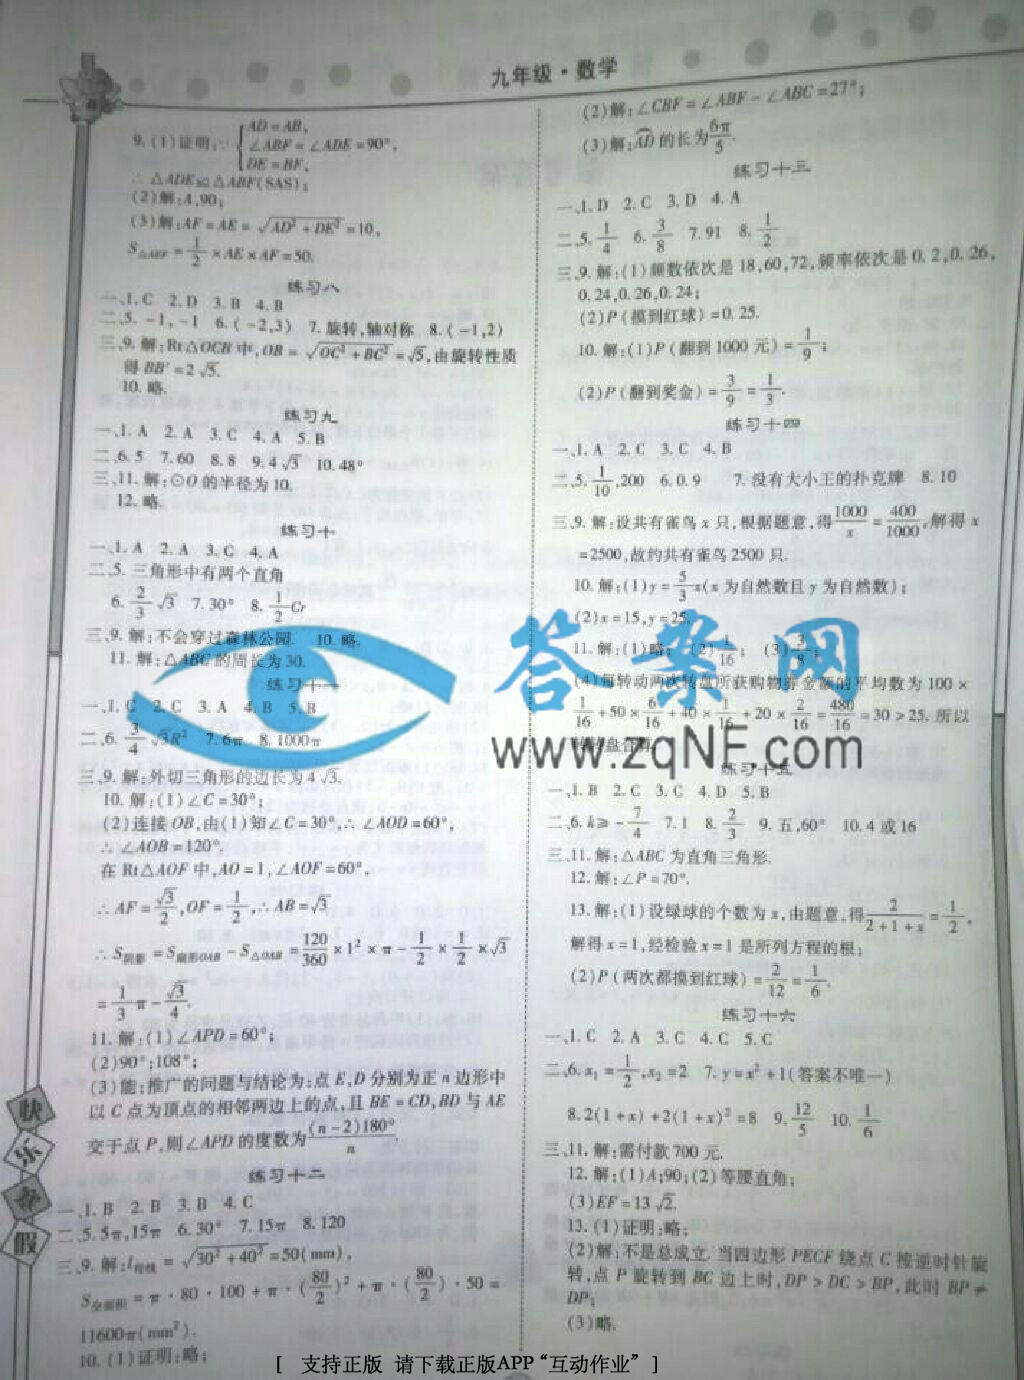 九年级·数学
9. (1)证明:∵ { AD=AB, ∠ABF=∠ADE=90°, DE=BF,
∴ △ADE≌△ABF(SAS);
(2)解:A,90;
(3)解:AF=AE=√(AD²+DE²)=10,
S△AEF=1/2×AE×AF=50.
练习八
一、1. C 2. D 3. B 4. B
二、5. -1, -1 6. (-2,3) 7. 旋转,轴对称 8. (-1,2)
三、9. 解:Rt△OCB中,OB=√(OC²+BC²)=√5,由旋转性质
得BB′=2√5.
10. 略.
练习九
一、1. A 2. A 3. C 4. A 5. B
二、6. 5 7. 60 8. 8 9. 4√3 10. 48°
三、11. 解:⊙O的半径为10.
12. 略.
练习十
一、1. A 2. A 3. C 4. A
二、5. 三角形中有两个直角
6. 2/3√3 7. 30° 8. 1/2Cr
三、9. 解:不会穿过森林公园. 10. 略.
11. 解:△ABC的周长为30.
练习十一
一、1. C 2. C 3. A 4. B 5. B
二、6. 3/4√3R² 7. 6π 8. 1000π
三、9. 解:外切三角形的边长为4√3.
10. 解:(1)∠C=30°;
(2)连接OB,由(1)知∠C=30°,∴∠AOD=60°,
∴∠AOB=120°.
在Rt△AOF中,AO=1,∠AOF=60°.
∴AF=√3/2,OF=1/2,∴AB=√3
∴S阴影=S扇形OAB-S△OAB=120/360×1²×π-1/2×1/2×√3
=1/3π-√3/4.
11. 解:(1)∠APD=60°;
(2)90°;108°;
(3)能;推广的问题与结论为:点E,D分别为正n边形中
以C点为顶点的相邻两边上的点,且BE=CD,BD与AE
交于点P,则∠APD的度数为(n-2)180°/n.
练习十二
一、1. B 2. B 3. B 4. C
二、5. 5π,15π 6. 30° 7. 15π 8. 120
三、9. 解:l母线=√(30²+40²)=50(mm),
S全面积=π·80·100+π·(80/2)²+π·(80/2)·50=
11600π(mm²).
10. (1)证明:略;
(2)解:∠CBF=∠ABF-∠ABC=27°;
(3)解:AD的长为6π/5.
练习十三
一、1. D 2. C 3. D 4. A
二、5. 1/4 6. 3/8 7. 91 8. 1/2
三、9. 解:(1)频数依次是18,60,72,频率依次是0.2,0.26,
0.24,0.26,0.24;
(2)P(摸到红球)=0.25.
10. 解:(1)P(翻到1000元)=1/9;
(2)P(翻到奖金)=3/9=1/3.
练习十四
一、1. A 2. C 3. C 4. B
二、5. 1/10,200 6. 0.9 7. 没有大小王的扑克牌 8. 10
三、9. 解:设共有雀鸟x只,根据题意,得1000/x=400/1000,解得x
=2500,故约共有雀鸟2500只.
10. 解:(1)y=5/3x(x为自然数且y为自然数);
(2)x=15,y=25.
11. 解:(1)略; (2)1/16; (3)3/8;
(4)每转动两次转盘所获购物券金额的平均数为100×
1/16+50×6/16+40×1/16+20×2/16=480/16=30>25. 所以
转盘合算.
练习十五
一、1. B 2. C 3. C 4. D 5. B
二、6. k≥-7/4 7. 1 8. 2/3 9. 五,60° 10. 4或16
三、11. 解:△ABC为直角三角形.
12. 解:∠P=70°.
13. 解:(1)设绿球的个数为x,由题意,得2/(2+1+x)=1/2,
解得x=1,经检验x=1是所列方程的根;
(2)P(两次都摸到红球)=2/12=1/6.
练习十六
一、1. C 2. A 3. C 4. C 5. C
二、6. x₁=1/2,x₂=2 7. y=x²+1(答案不唯一)
8. 2(1+x)+2(1+x)²=8 9. 12/5 10. 1/6
三、11. 解:需付款700元.
12. 解:(1)A;90;(2)等腰直角;
(3)EF=13√2.
13. (1)证明:略;
(2)解:不是总成立. 当四边形PECF绕点C按逆时针旋
转,点P旋转到BC边上时,DP>DC>BP,此时BP≠
DP;
(3)略.
快乐寒假
答案网
www.zqNF.com
[ 支持正版 请下载正版APP“互动作业” ]